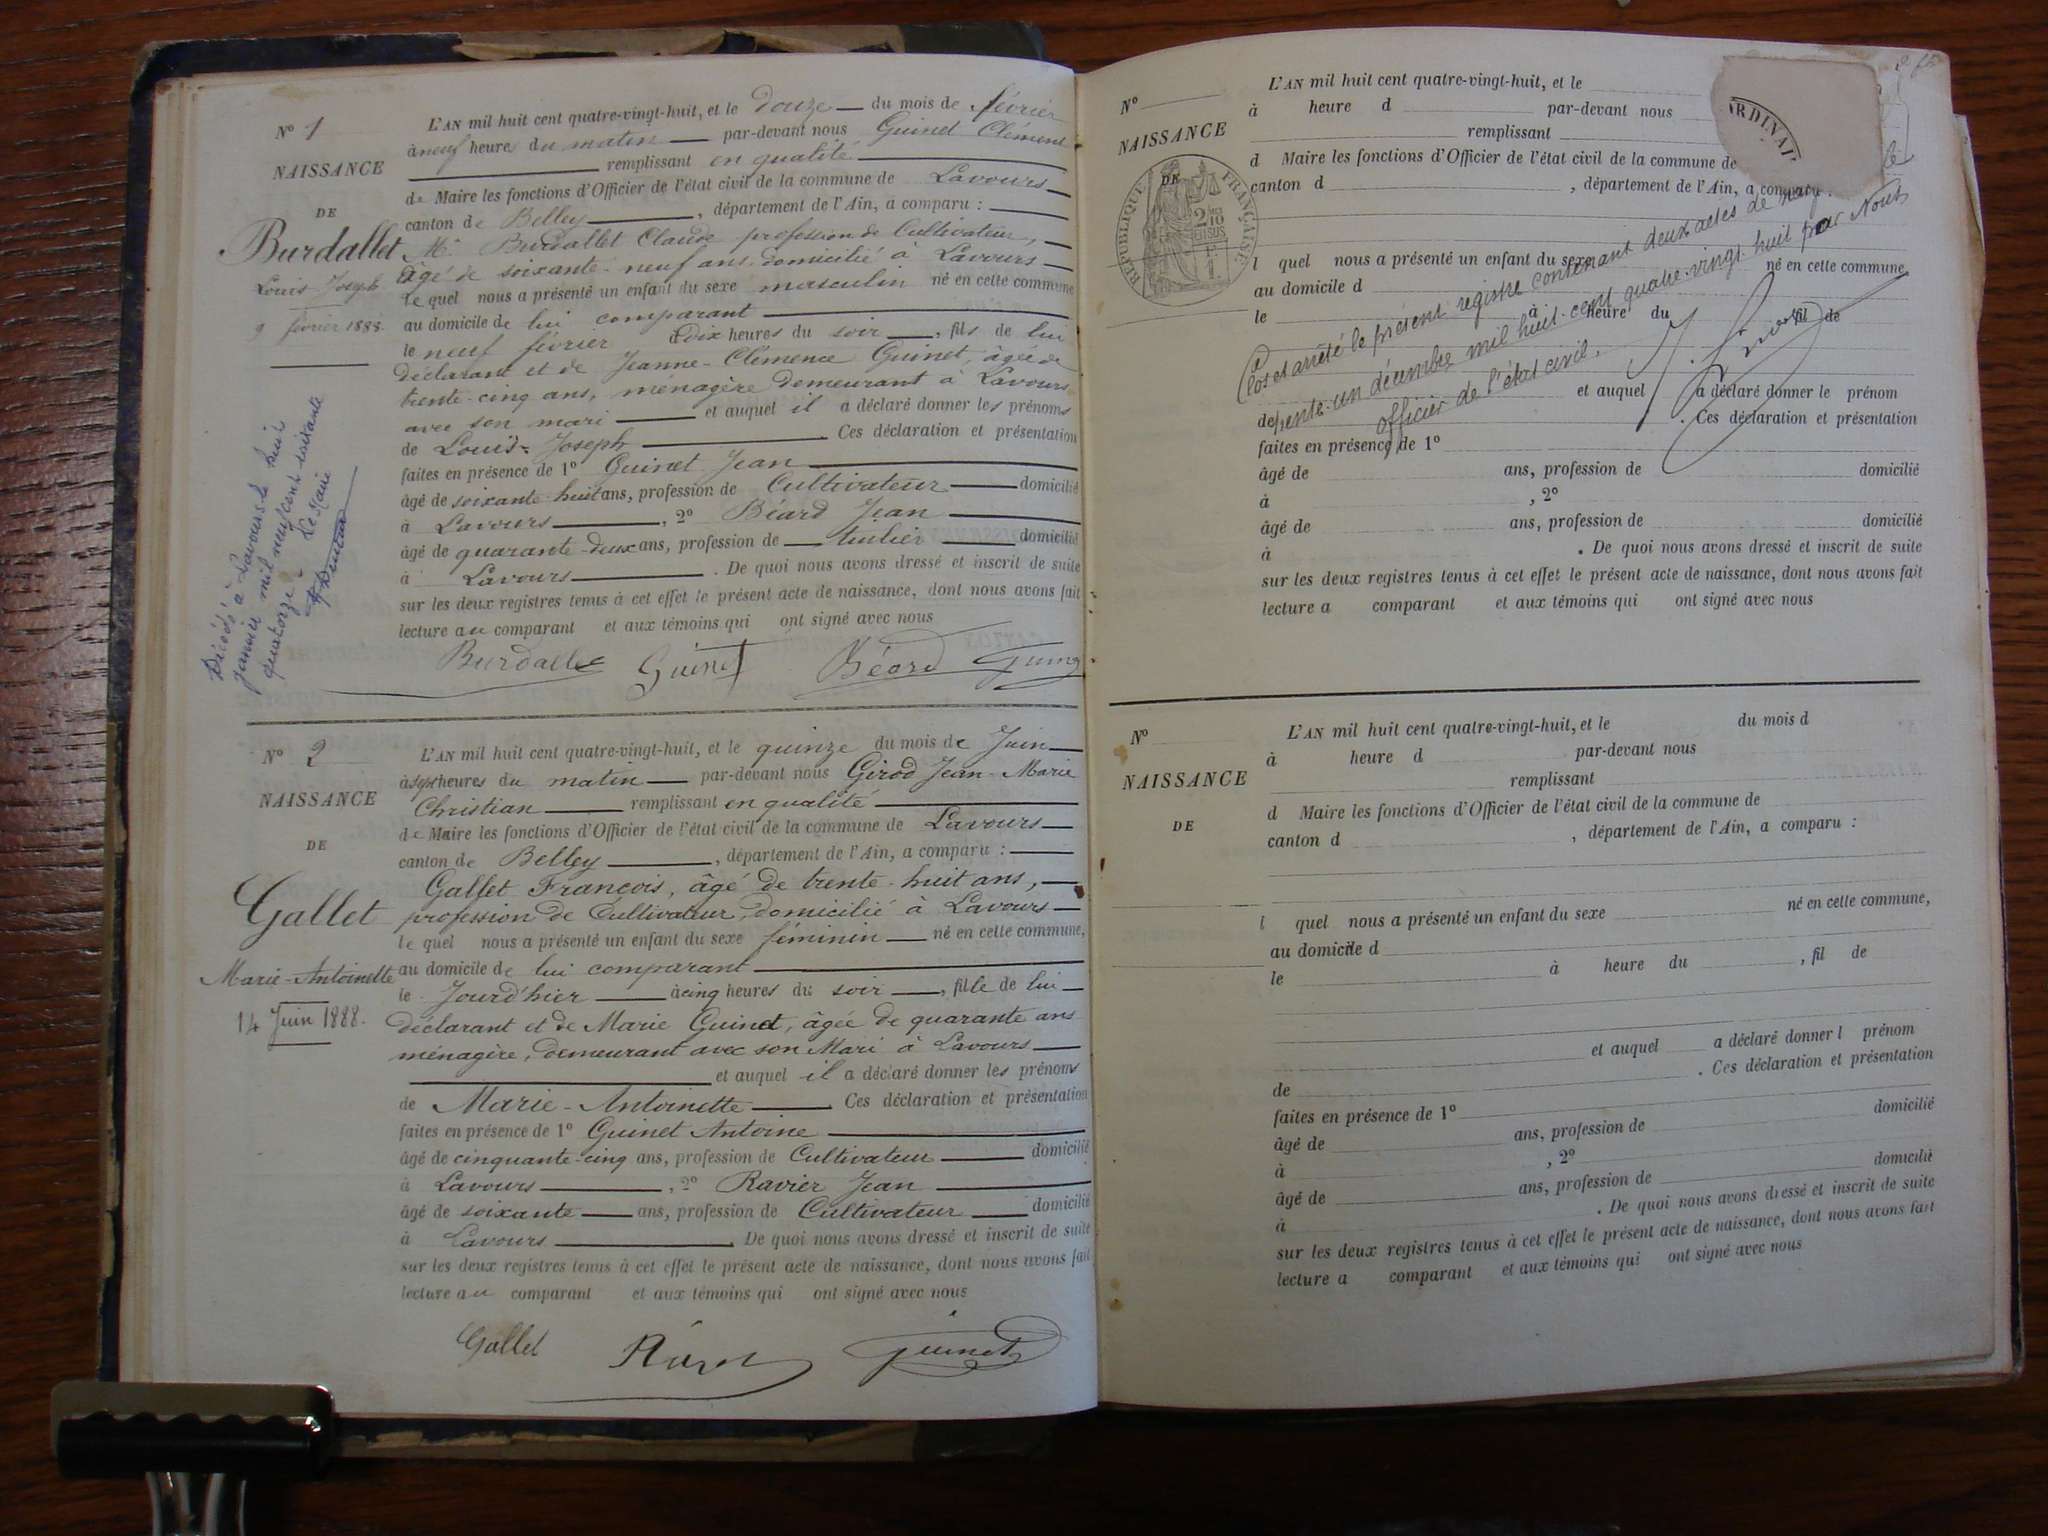 N° 1
NAISSANCE
DE
Burdallet
Louis Joseph
9 février 1888.
L'AN mil huit cent quatre-vingt-huit, et le douze du mois de février
à neuf heure du matin par-devant nous Guinet Clément
remplissant en qualité
de Maire les fonctions d'Officier de l'état civil de la commune de Lavours
canton de Belley, département de l'Ain, a comparu :
Mr Burdallet Claude profession de Cultivateur,
âgé de soixante-neuf ans domicilié à Lavours
le quel nous a présenté un enfant du sexe masculin né en cette commune
au domicile de lui comparant
le neuf février à dix heures du soir, fils de lui
déclarant et de Jeanne-Clémence Guinet, âgée de
trente-cinq ans, ménagère demeurant à Lavours
avec son mari et auquel il a déclaré donner les prénoms
de Louis-Joseph. Ces déclaration et présentation
faites en présence de 1° Guinet Jean
âgé de soixante-huit ans, profession de Cultivateur domicilié
à Lavours, 2° Béard Jean
âgé de quarante-deux ans, profession de tuilier domicilié
à Lavours. De quoi nous avons dressé et inscrit de suite
sur les deux registres tenus à cet effet le présent acte de naissance, dont nous avons fait
lecture au comparant et aux témoins qui ont signé avec nous
Burdallet Guinet Béard Guinet
Décédé à Lavours le huit
janvier mil neuf cent soixante
quatorze Le Maire
N° 2
NAISSANCE
DE
Gallet
Marie-Antoinette
14 Juin 1888.
L'AN mil huit cent quatre-vingt-huit, et le quinze du mois de Juin
à sept heures du matin par-devant nous Girod Jean-Marie
Christian remplissant en qualité
de Maire les fonctions d'Officier de l'état civil de la commune de Lavours
canton de Belley, département de l'Ain, a comparu :
Gallet François, âgé de trente-huit ans,
profession de Cultivateur, domicilié à Lavours
le quel nous a présenté un enfant du sexe féminin né en cette commune,
au domicile de lui comparant
le Jourd'hier à cinq heures du soir, fille de lui
déclarant et de Marie Guinet, âgée de quarante ans
ménagère, demeurant avec son Mari à Lavours
et auquel il a déclaré donner les prénoms
de Marie-Antoinette. Ces déclaration et présentation
faites en présence de 1° Guinet Antoine
âgé de cinquante-cinq ans, profession de Cultivateur domicilié
à Lavours, 2° Ravier Jean
âgé de soixante ans, profession de Cultivateur domicilié
à Lavours. De quoi nous avons dressé et inscrit de suite
sur les deux registres tenus à cet effet le présent acte de naissance, dont nous avons fait
lecture au comparant et aux témoins qui ont signé avec nous
Gallet Guinet
N°
NAISSANCE
DE
RÉPUBLIQUE FRANÇAISE
L'AN mil huit cent quatre-vingt-huit, et le
à heure d par-devant nous
remplissant
d Maire les fonctions d'Officier de l'état civil de la commune de
canton d , département de l'Ain, a comparu :
l quel nous a présenté un enfant du sexe né en cette commune
au domicile d
le à heure du fil de
et auquel a déclaré donner le prénom
de . Ces déclaration et présentation
faites en présence de 1°
âgé de ans, profession de domicilié
à , 2°
âgé de ans, profession de domicilié
à . De quoi nous avons dressé et inscrit de suite
sur les deux registres tenus à cet effet le présent acte de naissance, dont nous avons fait
lecture a comparant et aux témoins qui ont signé avec nous
Clos et arrêté le présent registre contenant deux actes de
trente-un décembre mil huit-cent quatre-vingt-huit par Nous
officier de l'état civil.
N°
NAISSANCE
DE
L'AN mil huit cent quatre-vingt-huit, et le du mois d
à heure d par-devant nous
remplissant
d Maire les fonctions d'Officier de l'état civil de la commune de
canton d , département de l'Ain, a comparu :
l quel nous a présenté un enfant du sexe né en cette commune,
au domicile d
le à heure du , fil de
et auquel a déclaré donner l prénom
de . Ces déclaration et présentation
faites en présence de 1°
âgé de ans, profession de domicilié
à , 2°
âgé de ans, profession de domicilié
à . De quoi nous avons dressé et inscrit de suite
sur les deux registres tenus à cet effet le présent acte de naissance, dont nous avons fait
lecture a comparant et aux témoins qui ont signé avec nous